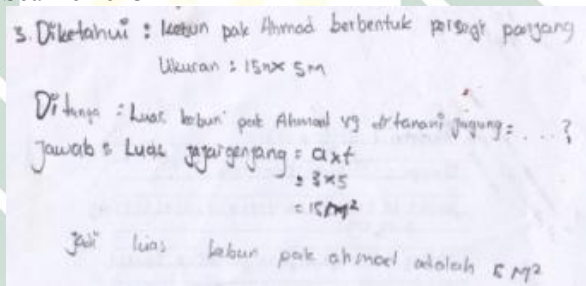 3. Diketahui : kebun pak Ahmad berbentuk persegi panjang
Ukuran : 15m x 5m
Ditanya : Luas kebun pak Ahmad yg ditanami jagung = . . . ?
Jawab : Luas jajargenjang = a x t
= 3 x 5
= 15 M²
jadi luas kebun pak ahmad adalah 15 M²